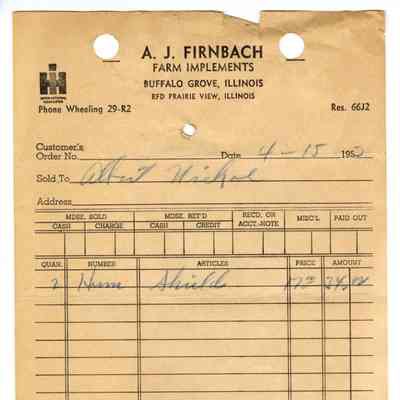 A. J. FIRNBACH
FARM IMPLEMENTS
BUFFALO GROVE, ILLINOIS
RFD PRAIRIE VIEW, ILLINOIS
INTERNATIONAL HARVESTER
Phone Wheeling 29-R2 Res. 66J2
Customer's
Order No. Date 4-15 1952
Sold To Albert
Address
MDSE. SOLD MDSE. RET'D RECD. ON ACCT.-NOTE MISC'L PAID OUT
CASH CHARGE CASH CREDIT
QUAN. NUMBER ARTICLES PRICE AMOUNT
2 Shields